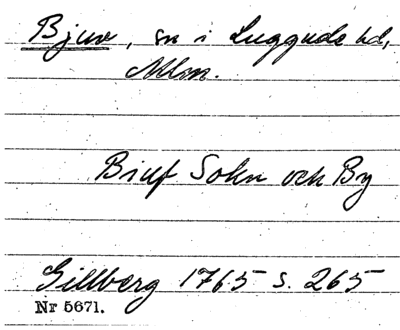 Bjuv, sn i Luggude hd,
Mlm.
Biuf Sokn och By
Gillberg 1765 s. 265
Nr 5671.